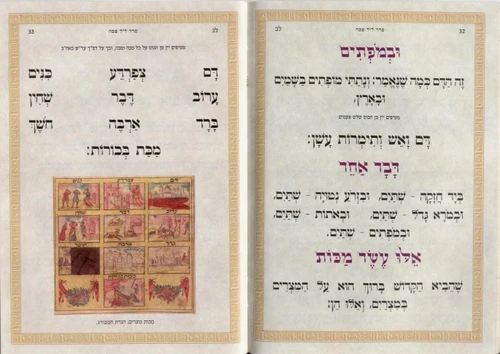 32 סדר ליל פסח לב
וּבְמֹפְתִים
זֶה הַדָּם כְּמָה שֶׁנֶּאֱמַר: וְנָתַתִּי מוֹפְתִים בַּשָּׁמַיִם
וּבָאָרֶץ,
מטיפים יין מן הכוס שלש פעמים
דָּם וָאֵשׁ וְתִימְרוֹת עָשָׁן:
דָּבָר אַחֵר
בְּיָד חֲזָקָה - שְׁתַּיִם, וּבִזְרֹעַ נְטוּיָה - שְׁתַּיִם,
וּבְמֹרָא גָּדֹל - שְׁתַּיִם, וּבְאֹתוֹת - שְׁתַּיִם,
וּבְמֹפְתִים - שְׁתַּיִם,
אֵלּוּ עֶשֶׂר מַכּוֹת
שֶׁהֵבִיא הַקָּדוֹשׁ בָּרוּךְ הוּא עַל הַמִּצְרִים
בְּמִצְרַיִם, וְאֵלּוּ הֵן:
לג סדר ליל פסח 33
מטיפים יין מן הכוס על כל מכה ומכה, וכן על דצ"ך עד"ש באח"ב
דָּם צְפַרְדֵּעַ כִּנִּים
עָרוֹב דֶּבֶר שְׁחִין
בָּרָד אַרְבֶּה חֹשֶׁךְ
מַכַּת בְּכוֹרוֹת:
מכות מצרים, הגדת המבורג.